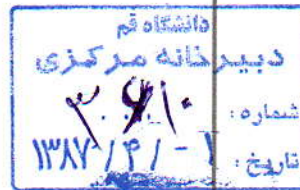 دانشگاه قم
دبیرخانه مرکزی
شماره:
تاریخ: ۱۳۸۷/۴/-۱